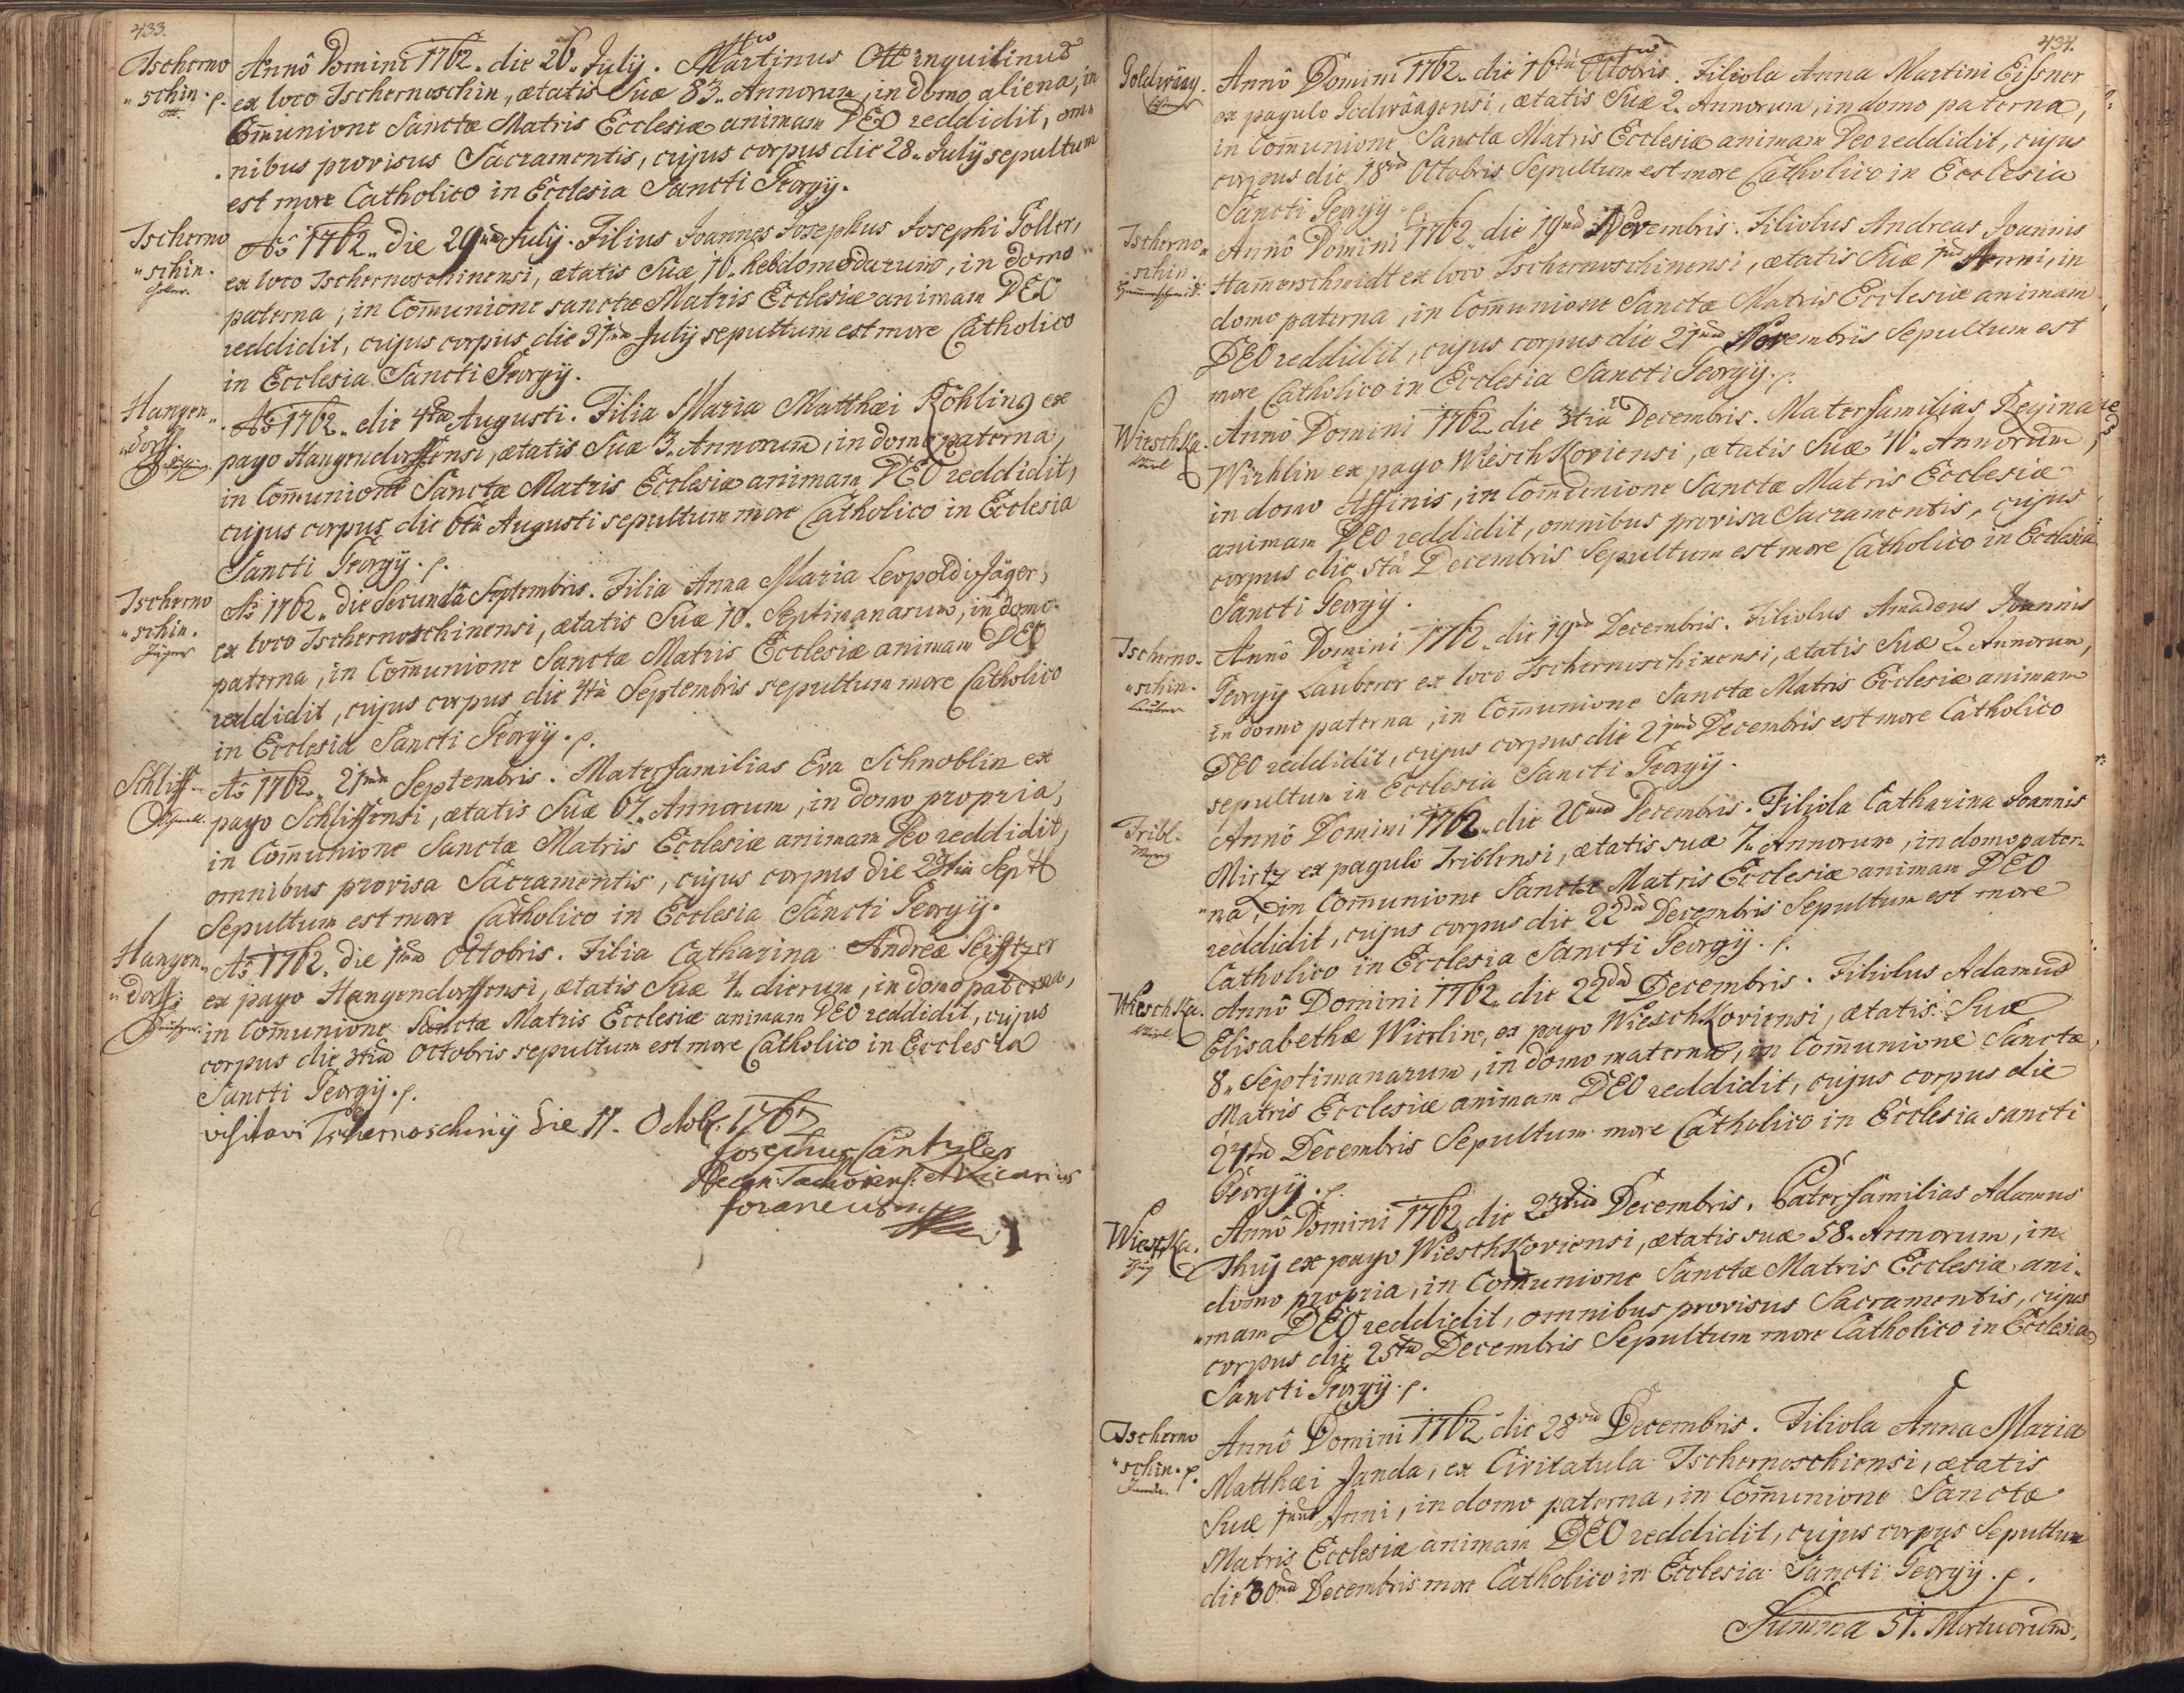 433.
Tscherno
"schin. p.
Ott.
Annô Domini 1762. die 26. Julij. Martinus Ott inquilinus
ex loco Tschernoschin, ætatis Suæ 83. Annorum, in domo aliena, in
Com̄unione Sanctæ Matris Ecclesiæ animam DEO reddidit, om-
nibus provisus Sacramentis, cujus corpus die 28. Julij sepultum
est more Catholico in Ecclesia Sancti Georgij.
Tscherno
"schin.
Goller.
Aō 1762. die 29na Julij. Filius Joannes Josephus Josephi Goller,
ex loco Tschernoschinensi, ætatis Suæ 10. hebdomadarum, in domo
paterna, in Com̄unione sanctæ Matris Ecclesiæ animam DEO
reddidit, cujus corpus die 31ma Julij sepultum est more Catholico
in Ecclesia Sancti Georgij.
Hangen"
"dorff.
Aō 1762. die 4ta Augusti. Filia Maria Matthæi Röhling ex
pago Hangendorffensi, ætatis Suæ 3. Annorum, in domo paterna,
in Com̄unione Sanctæ Matris Ecclesiæ animam DEO reddidit,
cujus corpus die 6ta Augusti sepultum more Catholico in Ecclesia
Sancti Georgij. p.
Tscherno
"schin.
Jäger
Aō 1762. die Secunda Septembris. Filia Anna Maria Leopoldi Jäger,
ex loco Tschernoschinensi, ætatis Suæ 10. Septimanarum, in domo
paterna, in Com̄unione Sanctæ Matris Ecclesiæ animam DEO
reddidit, cujus corpus die 4ta Septembris sepultum more Catholico
in Ecclesia Sancti Georgij. p.
Schliff
Aō 1762. 21ma Septembris. Materfamilias Eva Schnoblin ex
pago Schliffensi, ætatis Suæ 67. Annorum, in domo propria,
in Com̄unione Sanctæ Matris Ecclesiæ animam Deo reddidit,
omnibus provisa Sacramentis, cujus corpus die 23tia Sept
Sepultum est more Catholico in Ecclesia Sancti Georgij.
Hangen"
"dorff;
Aō 1762. die 1ma Octobris. Filia Catharina Andreæ
ex pago Hangendorffensi, ætatis Suæ 4. dierum, in domo paterna,
in Com̄unione Sanctæ Matris Ecclesiæ animam DEO reddidit, cujus
corpus die 3tia Octobris sepultum est more Catholico in Ecclesia
Sancti Georgij. p.
visitavi Tschernoschinij die 11. Octobr. 1762
Josephus
Decan Vicarius
foraneus
434.
Goldwäag.
Anno Domini 1762. die 16ta Octobris. Filiola Anna Martini Eissner
ex pagulo Goldwäagensi, ætatis Suæ 2. Annorum, in domo paterna,
in Com̄unione Sanctæ Matris Ecclesiæ animam Deo reddidit, cujus
corpus die 18va Octobris Sepultum est more Catholico in Ecclesia
Sancti Georgij. p.
Tscherno"
schin.
Hamerschmidt.
Annô Domini 1762. die 19na Novembris. Filiolus Andreas Joannis
Hamerschmidt ex loco Tschernoschinensi, ætatis Suæ 1mi Anni, in
domo paterna, in Com̄unione Sanctæ Matris Ecclesiæ animam
DEO reddidit, cujus corpus die 21ma Novembris Sepultum est
more Catholico in Ecclesia Sancti Georgij. p.
Wieschka.
Annô Domini 1762. die 3tia Decembris. Materfamilias Regina
Wirhlin ex pago Wieschkoviensi, ætatis Suæ Annorum,
in domo Affinis, in Com̄unione Sanctæ Matris Ecclesiæ
animam DEO reddidit, omnibus provisa Sacramentis, cujus
corpus die 5ta Decembris Sepultum est more Catholico in Ecclesia
Sancti Georgij.
Tscherno"
"schin.
Lauberer
Annô Domini 1762. die 19na Decembris. Filiolus Amadeus Joannis
Georgij Lauberer ex loco Tschernoschinensi, ætatis Suæ 2. Annorum,
in domo paterna, in Com̄unione Sanctæ Matris Ecclesiæ animam
DEO reddidit, cujus corpus die 21ma Decembris est more Catholico
sepultum in Ecclesia Sancti Georgij.
Tribl.
Annô Domini 1762. die 20ma Decembris. Filiola Catharina Joannis
Mirtz ex pagulo Triblensi, ætatis suæ 7. Annorum, in domo pater-
"na, in Com̄unione Sanctæ Matris Ecclesiæ animam DEO
reddidit, cujus corpus die 22da Decembris Sepultum est more
Catholico in Ecclesia Sancti Georgij. p.
Wieschka.
Annô Domini 1762. die 22da Decembris. Filiolus Adamus
Elisabethæ Wierlin, ex pago Wieschkoviensi, ætatis Suæ
8. Septimanarum, in domo materna, in Com̄unione Sanctæ
Matris Ecclesiæ animam DEO reddidit, cujus corpus die
24ta Decembris Sepultum more Catholico in Ecclesia sancti
Georgij. p.
Wieschka.
Thuj
Annô Domini 1762 die 23tia Decembris. Paterfamilias Adamus
Thuj ex pago Wieschkoviensi, ætatis suæ 58. Annorum, in
domo propria, in Com̄unione Sanctæ Matris Ecclesiæ ani-
"mam DEO reddidit, omnibus provisus Sacramentis, cujus
corpus die 25ta Decembris Sepultum more Catholico in Ecclesia
Sancti Georgij. p.
Tscherno
"schin. p.
Janda.
Annô Domini 1762 die 28va Decembris. Filiola Anna Maria
Matthæi Janda, ex Civitatula Tschernoschiensi, ætatis
Suæ 1mi Anni, in domo paterna, in Com̄unione Sanctæ
Matris Ecclesiæ animam DEO reddidit, cujus corpus Sepultum
die 30ma Decembris more Catholico in Ecclesia Sancti Georgij. p.
Summa 51. Mortuorum.